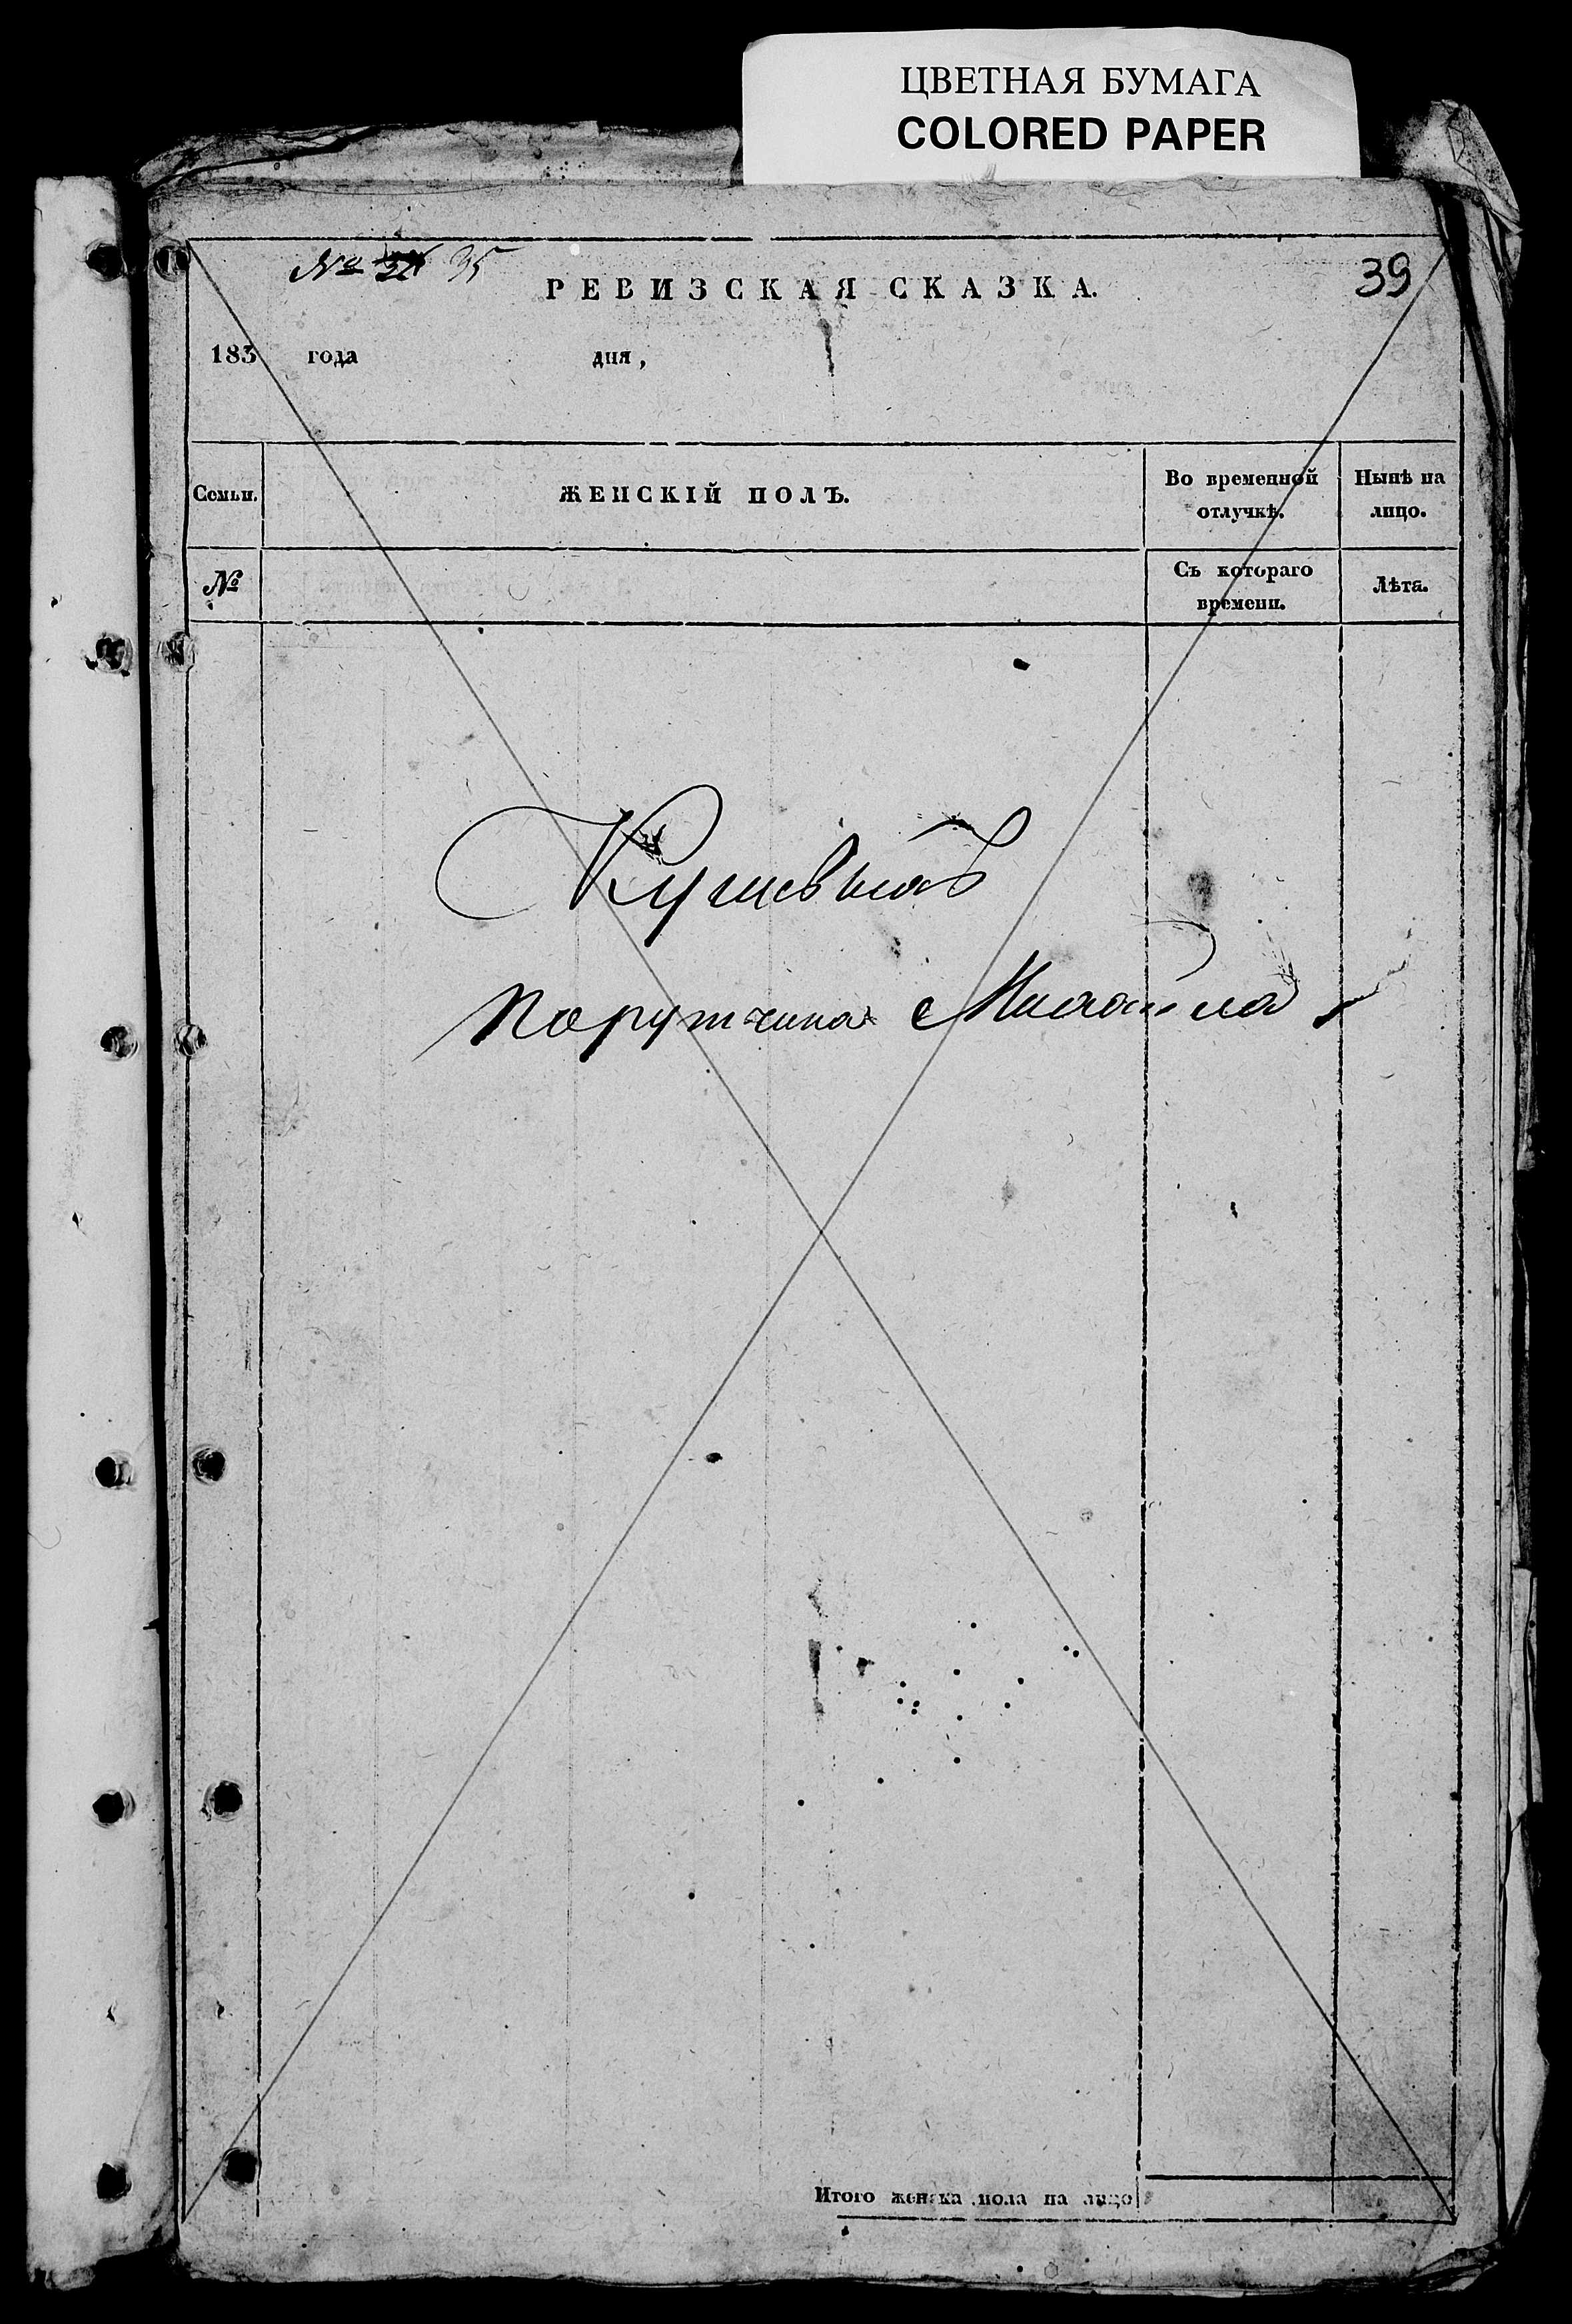 ЦВЕТНАЯ БУМАГА
COLORED PAPER
№ 35
39
РЕВИЗСКАЯ СКАЗКА.
183 года дня,
Семьи.
ЖЕНСКІЙ ПОЛЪ.
Во временной отлучкѣ.
Нынѣ на лицо.
№
Съ котораго времени.
Лѣта.
Порутчика Михайла
Итого женска пола на лицо